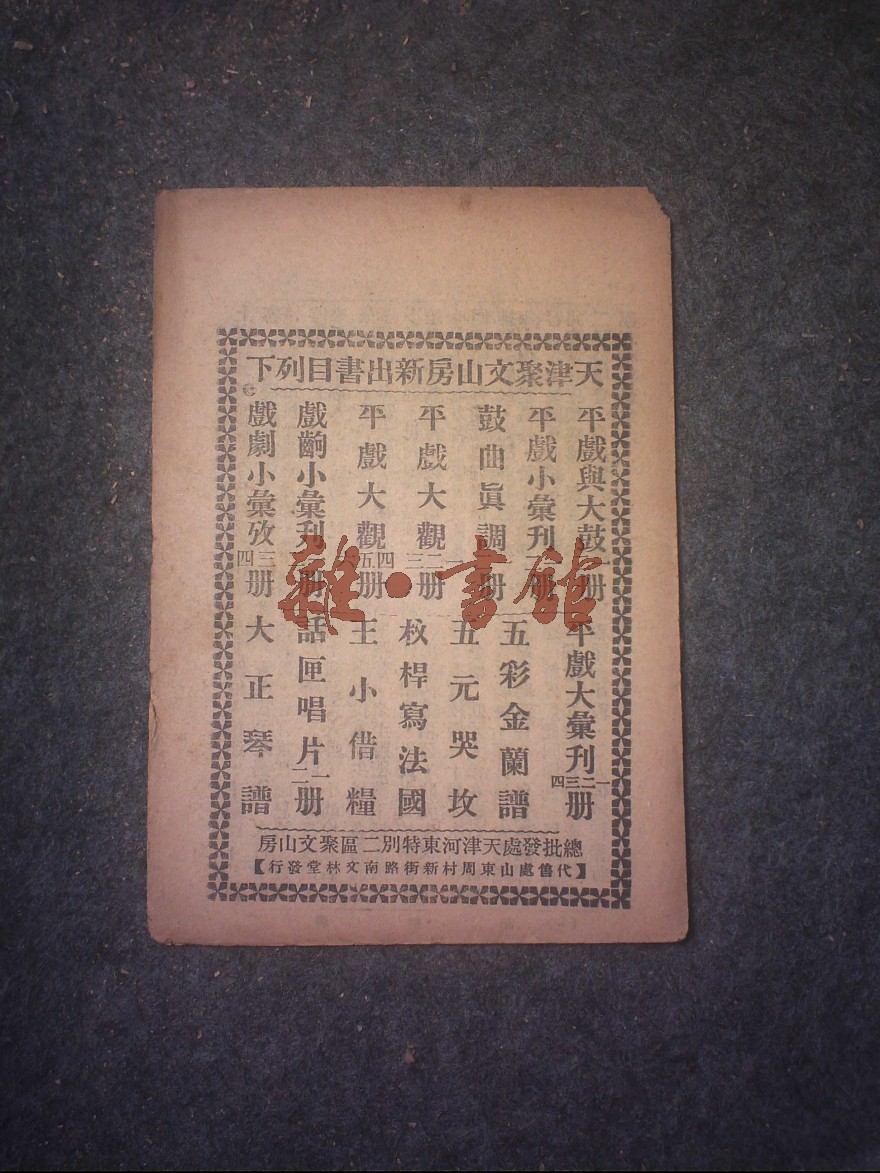 天津聚文山房新出書目列下
平戲與大鼓一册
平戲小彙刊一册
鼓曲眞調册
平戲大觀一二三册
平戲大觀四五六册
戲齣小彙刊册
戲劇小彙攷三四册
平戲大彙刊一二三四册
五彩金蘭譜
五元哭坟
枚桿寫法國
王小借糧
話匣唱片一二册
大正琴譜
總批發處天津河東特別二區聚文山房
【代售處山東周村新街路南文林堂發行】
雜·書館